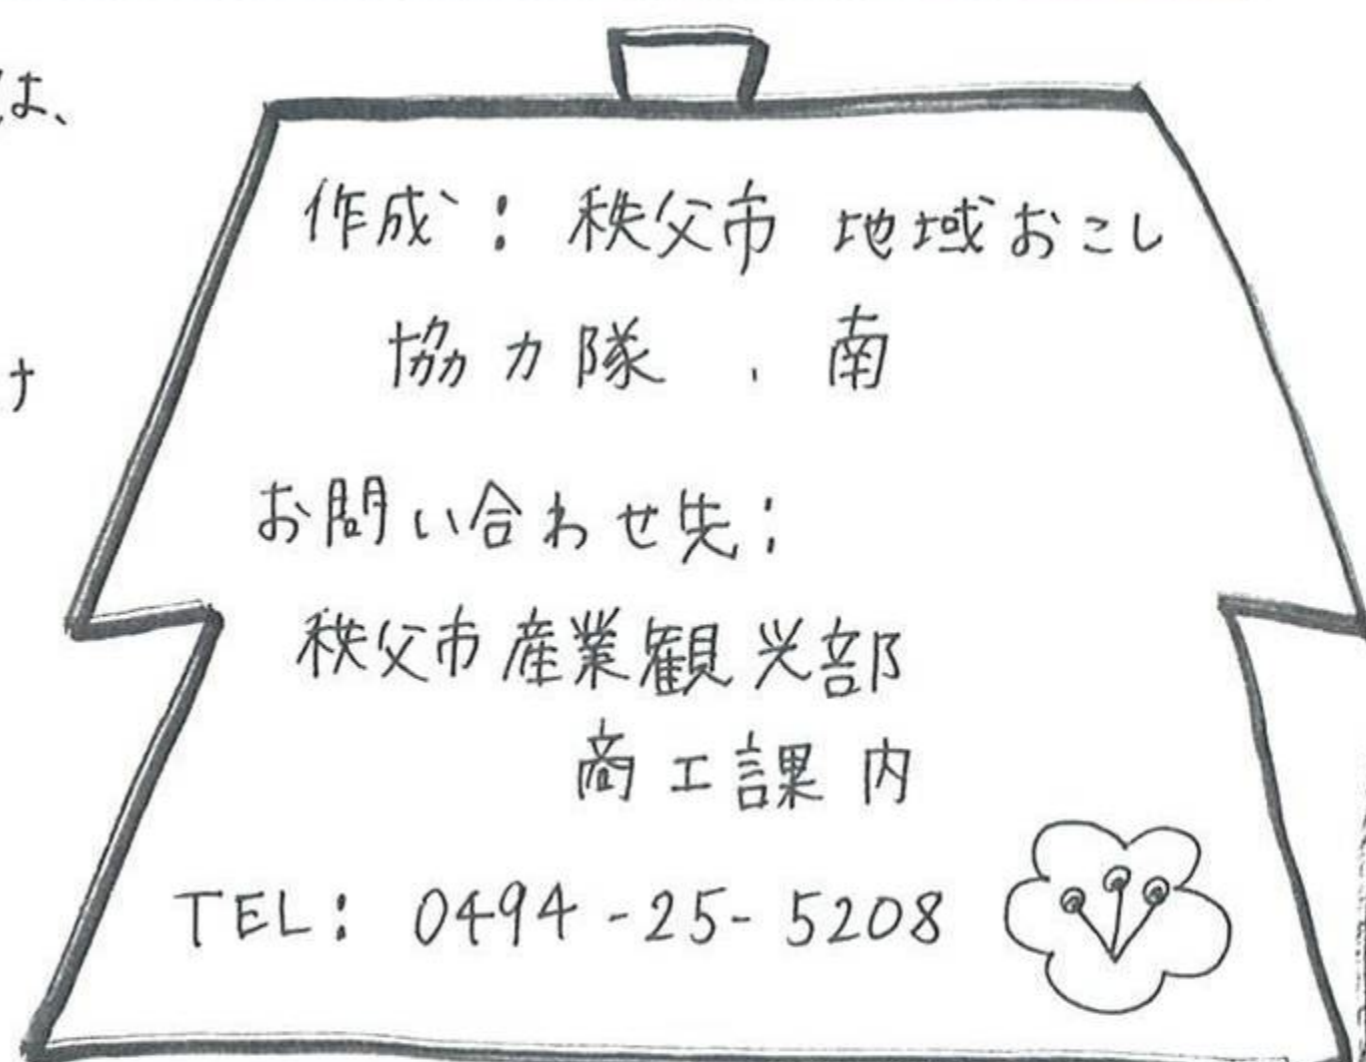 は、
け
作成：秩父市 地域おこし
協力隊．南
お問い合わせ先：
秩父市産業観光部
商工課内
TEL：0494-25-5208